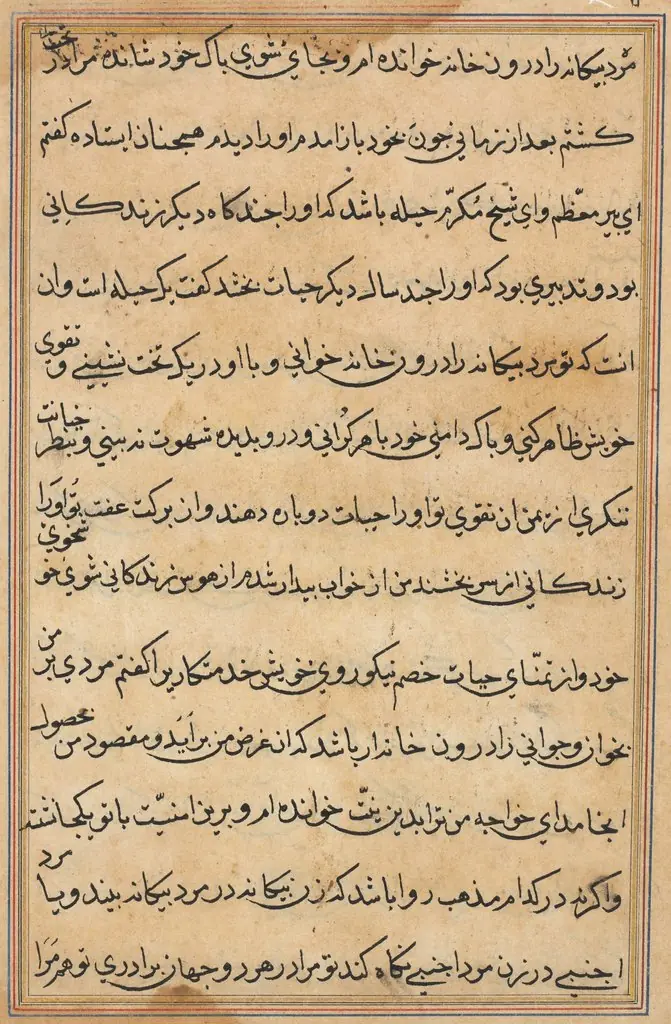 مرد بیکانه را درون خانه خوانده ام و بجای شوی باک خود شانده مرا در تحت
کشتم بعد از زمانی جون بخود باز امدم او را دیدم همجنان ایستاده کفتم
ای بیر معظم و ای شیخ مکرم حیله باشد که او را جند کاه دیکر زندکانی
بود و تدبیری بود که او را جند سال دیکر حیات بخشد کفت یک حیله است وان
انست که تو مرد بیکانه را درون خانه خوانی و با او در یک تخت نشینی و تقوی
خویش ظاهر کنی و باک دامنی خود باهر کرانی و درو بدیده شهوت نه بینی و بنظر خیانت
ننکری از یمن ان تقوی تو او را حیات دوباره دهند و از برکت عفت تو او را
زندکانی از سر بخشند من از خواب بیدار شدم از هوس زندکانی شوی خو
خود و از تمنای حیات خصم نیکو روی خویش خدمتکار را کفتم مردی بر من
بخوان و جوانی را درون خانه ار باشد که ان غرض من براید و مقصود من بحصول
انجامد ای خواجه من ترا بدین نیت خوانده ام و برین امنیت با تو یکجا نشته
واکرنه در کدام مذهب روا باشد که زن بیکانه در مرد بیکانه بیند و یا مرد
اجنبی در زن مرد اجنبی نکاه کند تو مرا در هر دو جهان برادری تو هم مرا